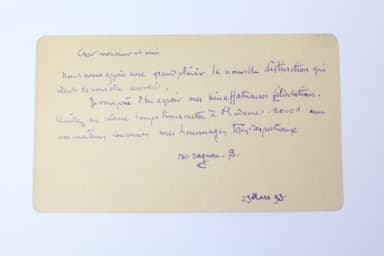 Cher monsieur et ami
Nous avons appris avec grand plaisir la nouvelle distinction qui
vient de vous être
Je vous prie d'en agréer mes bien affectueuses félicitations.
Veuillez en même temps transmettre à Madame avec
vos meilleurs souvenirs mes hommages très respectueux
23 Mars 93.